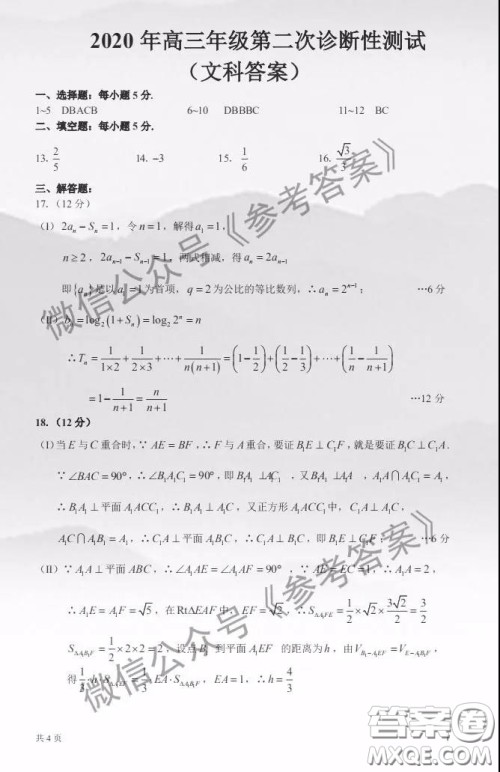 2020 年高三年级第二次诊断性测试
（文科答案）
一、选择题：每小题 5 分.
1~5 DBACB 6~10 DBBBC 11~12 BC
二、填空题：每小题 5 分.
13. 2/5 14. −3 15. 1/6 16. √3/3
三、解答题：
17.（12 分）
(I) 2aₙ − Sₙ = 1，令 n = 1，解得 a₁ = 1，
n ≥ 2，2aₙ₋₁ − Sₙ₋₁ = 1，两式相减，得 aₙ = 2aₙ₋₁
即{aₙ}是以 a₁ = 1 为首项，q = 2 为公比的等比数列，∴ aₙ = 2ⁿ⁻¹； …6 分
(II) bₙ = log₂(1+Sₙ) = log₂2ⁿ = n
∴ Tₙ = 1/(1×2) + 1/(2×3) + ⋯ + 1/(n(n+1)) = (1 − 1/2) + (1/2 − 1/3) + ⋯ + (1/n − 1/(n+1))
= 1 − 1/(n+1) = n/(n+1) …12 分
18.（12 分）
(I) 当 E 与 C 重合时，∵ AE = BF，∴ F 与 A 重合，要证 B₁E ⊥ C₁F，就是要证 B₁C ⊥ C₁A.
∵ ∠BAC = 90°，∴ ∠B₁A₁C₁ = 90°，即 B₁A₁ ⊥ A₁C₁，又 B₁A₁ ⊥ A₁A，A₁A ⋂ A₁C₁ = A₁，
∴ B₁A₁ ⊥ 平面 A₁ACC₁，∴ B₁A₁ ⊥ C₁A，又正方形 A₁ACC₁ 中，C₁A ⊥ A₁C，
A₁C ⋂ A₁B₁ = A₁，∴ C₁A ⊥ 平面 A₁B₁C，∴ C₁A ⊥ B₁C，即 B₁E ⊥ C₁F； …6 分
(II) ∵ A₁A ⊥ 平面 ABC，∴ ∠A₁AE = ∠A₁AF = 90°，∵ AE = EC = 1，A₁A = 2，
∴ A₁E = A₁F = √5，在 Rt△EAF 中，EF = √2，∴ S△A₁FE = 1/2 × √2 × 3√2/2 = 3/2
S△A₁B₁F = 1/2 × 2 × 2 = 2，设点 B₁ 到平面 A₁EF 的距离为 h，由 V_B₁−A₁EF = V_E−A₁B₁F，
得 1/3 · h · S△A₁EF = 1/3 EA · S△A₁B₁F，EA = 1，∴ h = 4/3
共 4 页
微信公众号《参考答案》
微信公众号《参考答案》
答案圈
MXQE.COM